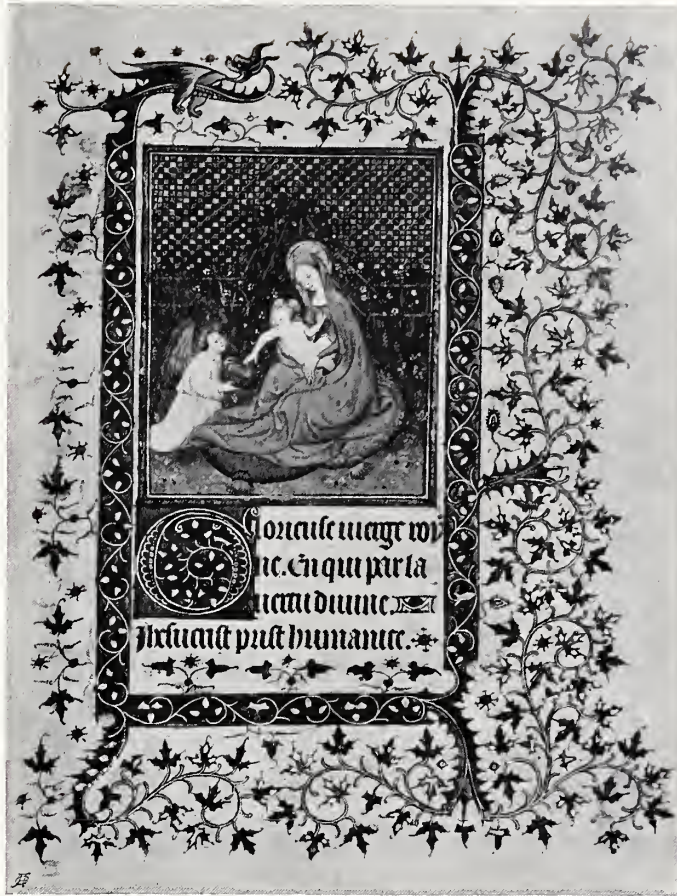 Glorieuse vierge roy
ne. En qui par la
vertu divine.
Jhesucrist prist humanite.